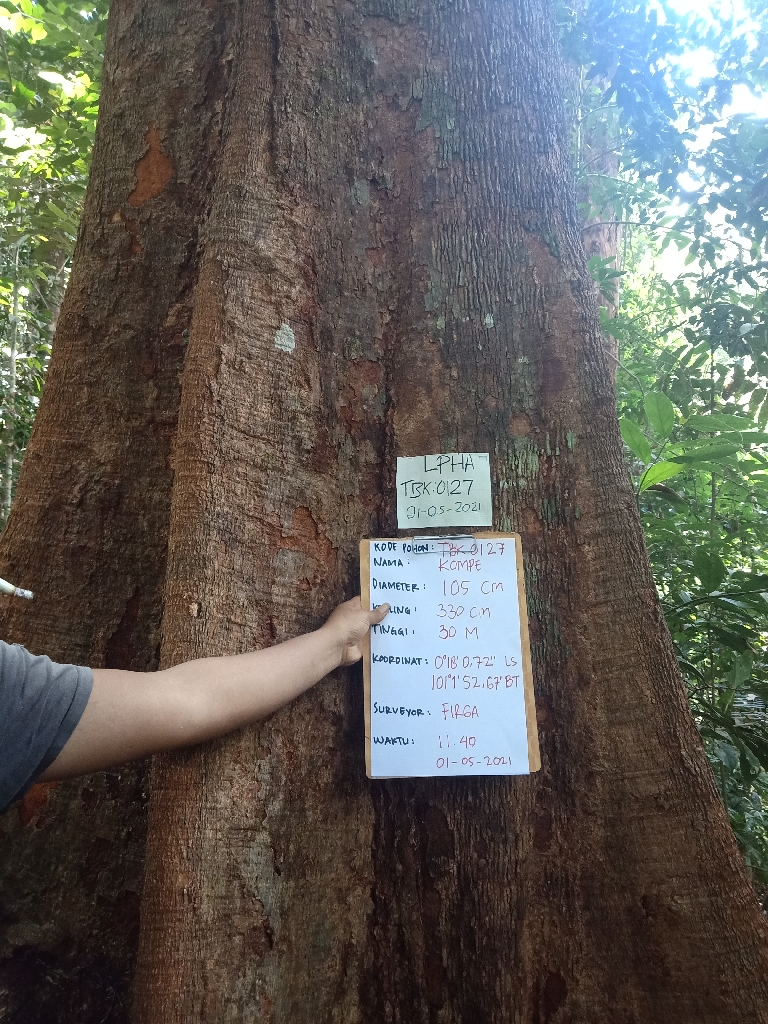 LPHA
TBK.0127
01-05-2021
KODE POHON: TBK 0127
NAMA: KOMPE
DIAMETER: 105 Cm
KELILING: 330 cm
TINGGI: 30 M
KOORDINAT: 0°18'0,72" LS
101°1'52,67" BT
SURVEYOR: FIRGA
WAKTU: 11.40
01-05-2021